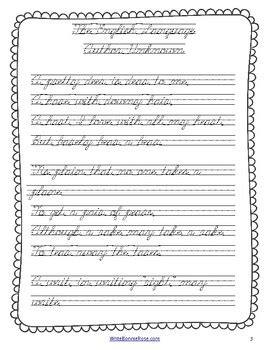 The English Language
Author Unknown
A pretty deer is dear to me,
A hare with downy hair,
A hart I love with all my heart,
But barely bear a bear.
'Tis plain that no one takes a
plane
To get a pair of pears,
Although a rake may take a rake
To tear away the tares.
A writ, in writing "right", may
write
WriteBonnieRose.com
3